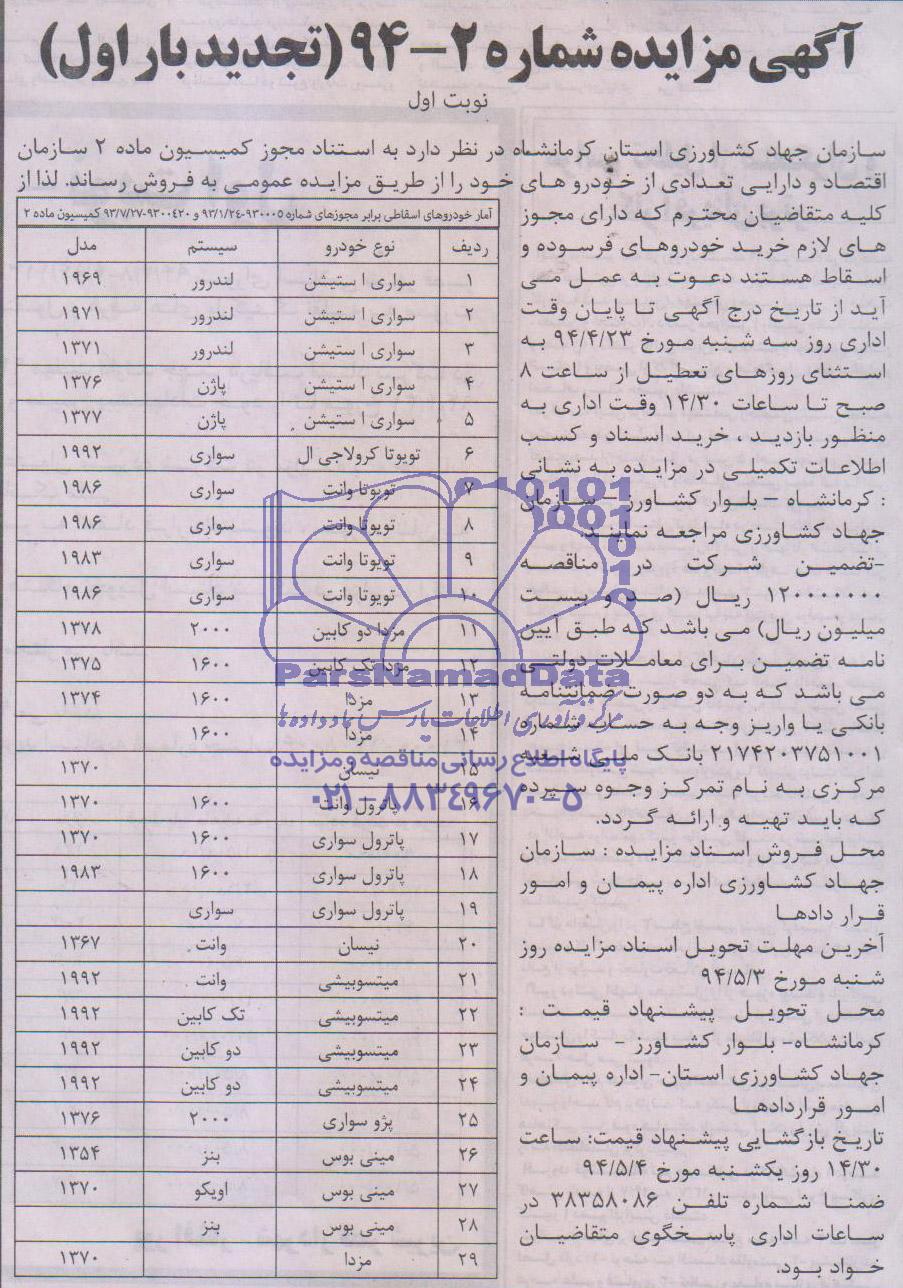 آگهی مزایده شماره ۲-۹۴ (تجدید بار اول)
نوبت اول
سازمان جهاد کشاورزی استان کرمانشاه در نظر دارد به استناد مجوز کمیسیون ماده ۲ سازمان
اقتصاد و دارایی تعدادی از خودرو های خود را از طریق مزایده عمومی به فروش رساند. لذا از
کلیه متقاضیان محترم که دارای مجوز
های لازم خرید خودروهای فرسوده و
اسقاط هستند دعوت به عمل می
آید از تاریخ درج آگهی تا پایان وقت
اداری روز سه شنبه مورخ ۹۴/۴/۲۳ به
استثنای روزهای تعطیل از ساعت ۸
صبح تا ساعات ۱۴/۳۰ وقت اداری به
منظور بازدید ، خرید اسناد و کسب
اطلاعات تکمیلی در مزایده به نشانی
: کرمانشاه – بلوار کشاورز – سازمان
جهاد کشاورزی مراجعه نمایند.
-تضمین شرکت در مناقصه
۱۲۰۰۰۰۰۰۰ ریال (صد و بیست
میلیون ریال) می باشد که طبق آیین
نامه تضمین برای معاملات دولتی
می باشد که به دو صورت ضمانتنامه
بانکی یا واریز وجه به حساب شماره
۲۱۷۴۲۰۳۷۵۱۰۰۱ بانک ملی شعبه
مرکزی به نام تمرکز وجوه سپرده
که باید تهیه و ارائه گردد.
محل فروش اسناد مزایده : سازمان
جهاد کشاورزی اداره پیمان و امور
قرار دادها
آخرین مهلت تحویل اسناد مزایده روز
شنبه مورخ ۹۴/۵/۳
محل تحویل پیشنهاد قیمت :
کرمانشاه- بلوار کشاورز - سازمان
جهاد کشاورزی استان- اداره پیمان و
امور قراردادها
تاریخ بازگشایی پیشنهاد قیمت: ساعت
۱۴/۳۰ روز یکشنبه مورخ ۹۴/۵/۴
ضمنا شماره تلفن ۳۸۳۵۸۰۸۶ در
ساعات اداری پاسخگوی متقاضیان
خواد بود.
آمار خودروهای اسقاطی برابر مجوزهای شماره ۹۳۰۰۰۵-۹۳/۱/۲۴ و ۹۳۰۰۴۲۰-۹۳/۷/۲۷ کمیسیون ماده ۲
ردیف نوع خودرو سیستم مدل
۱ سواری ا ستیشن لندرور ۱۹۶۹
۲ سواری ا ستیشن لندرور ۱۹۷۱
۳ سواری ا ستیشن لندرور ۱۳۷۱
۴ سواری ا ستیشن پاژن ۱۳۷۶
۵ سواری ا ستیشن پاژن ۱۳۷۷
۶ تویوتا کرولاجی ال سواری ۱۹۹۲
۷ تویوتا وانت سواری ۱۹۸۶
۸ تویوتا وانت سواری ۱۹۸۶
۹ تویوتا وانت سواری ۱۹۸۳
۱۰ تویوتا وانت سواری ۱۹۸۶
۱۱ مزدا دو کابین ۲۰۰۰ ۱۳۷۸
۱۲ مزدا تک کابین ۱۶۰۰ ۱۳۷۵
۱۳ مزدا ۱۶۰۰ ۱۳۷۴
۱۴ مزدا ۱۶۰۰
۱۵ نیسان ۱۳۷۰
۱۶ پاترول وانت ۱۶۰۰ ۱۳۷۰
۱۷ پاترول سواری ۱۶۰۰ ۱۳۷۰
۱۸ پاترول سواری ۱۶۰۰ ۱۹۸۳
۱۹ پاترول سواری سواری
۲۰ نیسان وانت ۱۳۶۷
۲۱ میتسوبیشی وانت ۱۹۹۲
۲۲ میتسوبیشی تک کابین ۱۹۹۲
۲۳ میتسوبیشی دو کابین ۱۹۹۲
۲۴ میتسوبیشی دو کابین ۱۹۹۲
۲۵ پژو سواری ۲۰۰۰ ۱۳۷۶
۲۶ مینی بوس بنز ۱۳۵۴
۲۷ مینی بوس اویکو ۱۳۷۰
۲۸ مینی بوس بنز
۲۹ مزدا ۱۳۷۰
ParsNamadData
مرکز فرآوری اطلاعات پارس نماد داده ها
پایگاه اطلاع رسانی مناقصه و مزایده
۰۲۱-۸۸۳۴۹۶۷۰-۵